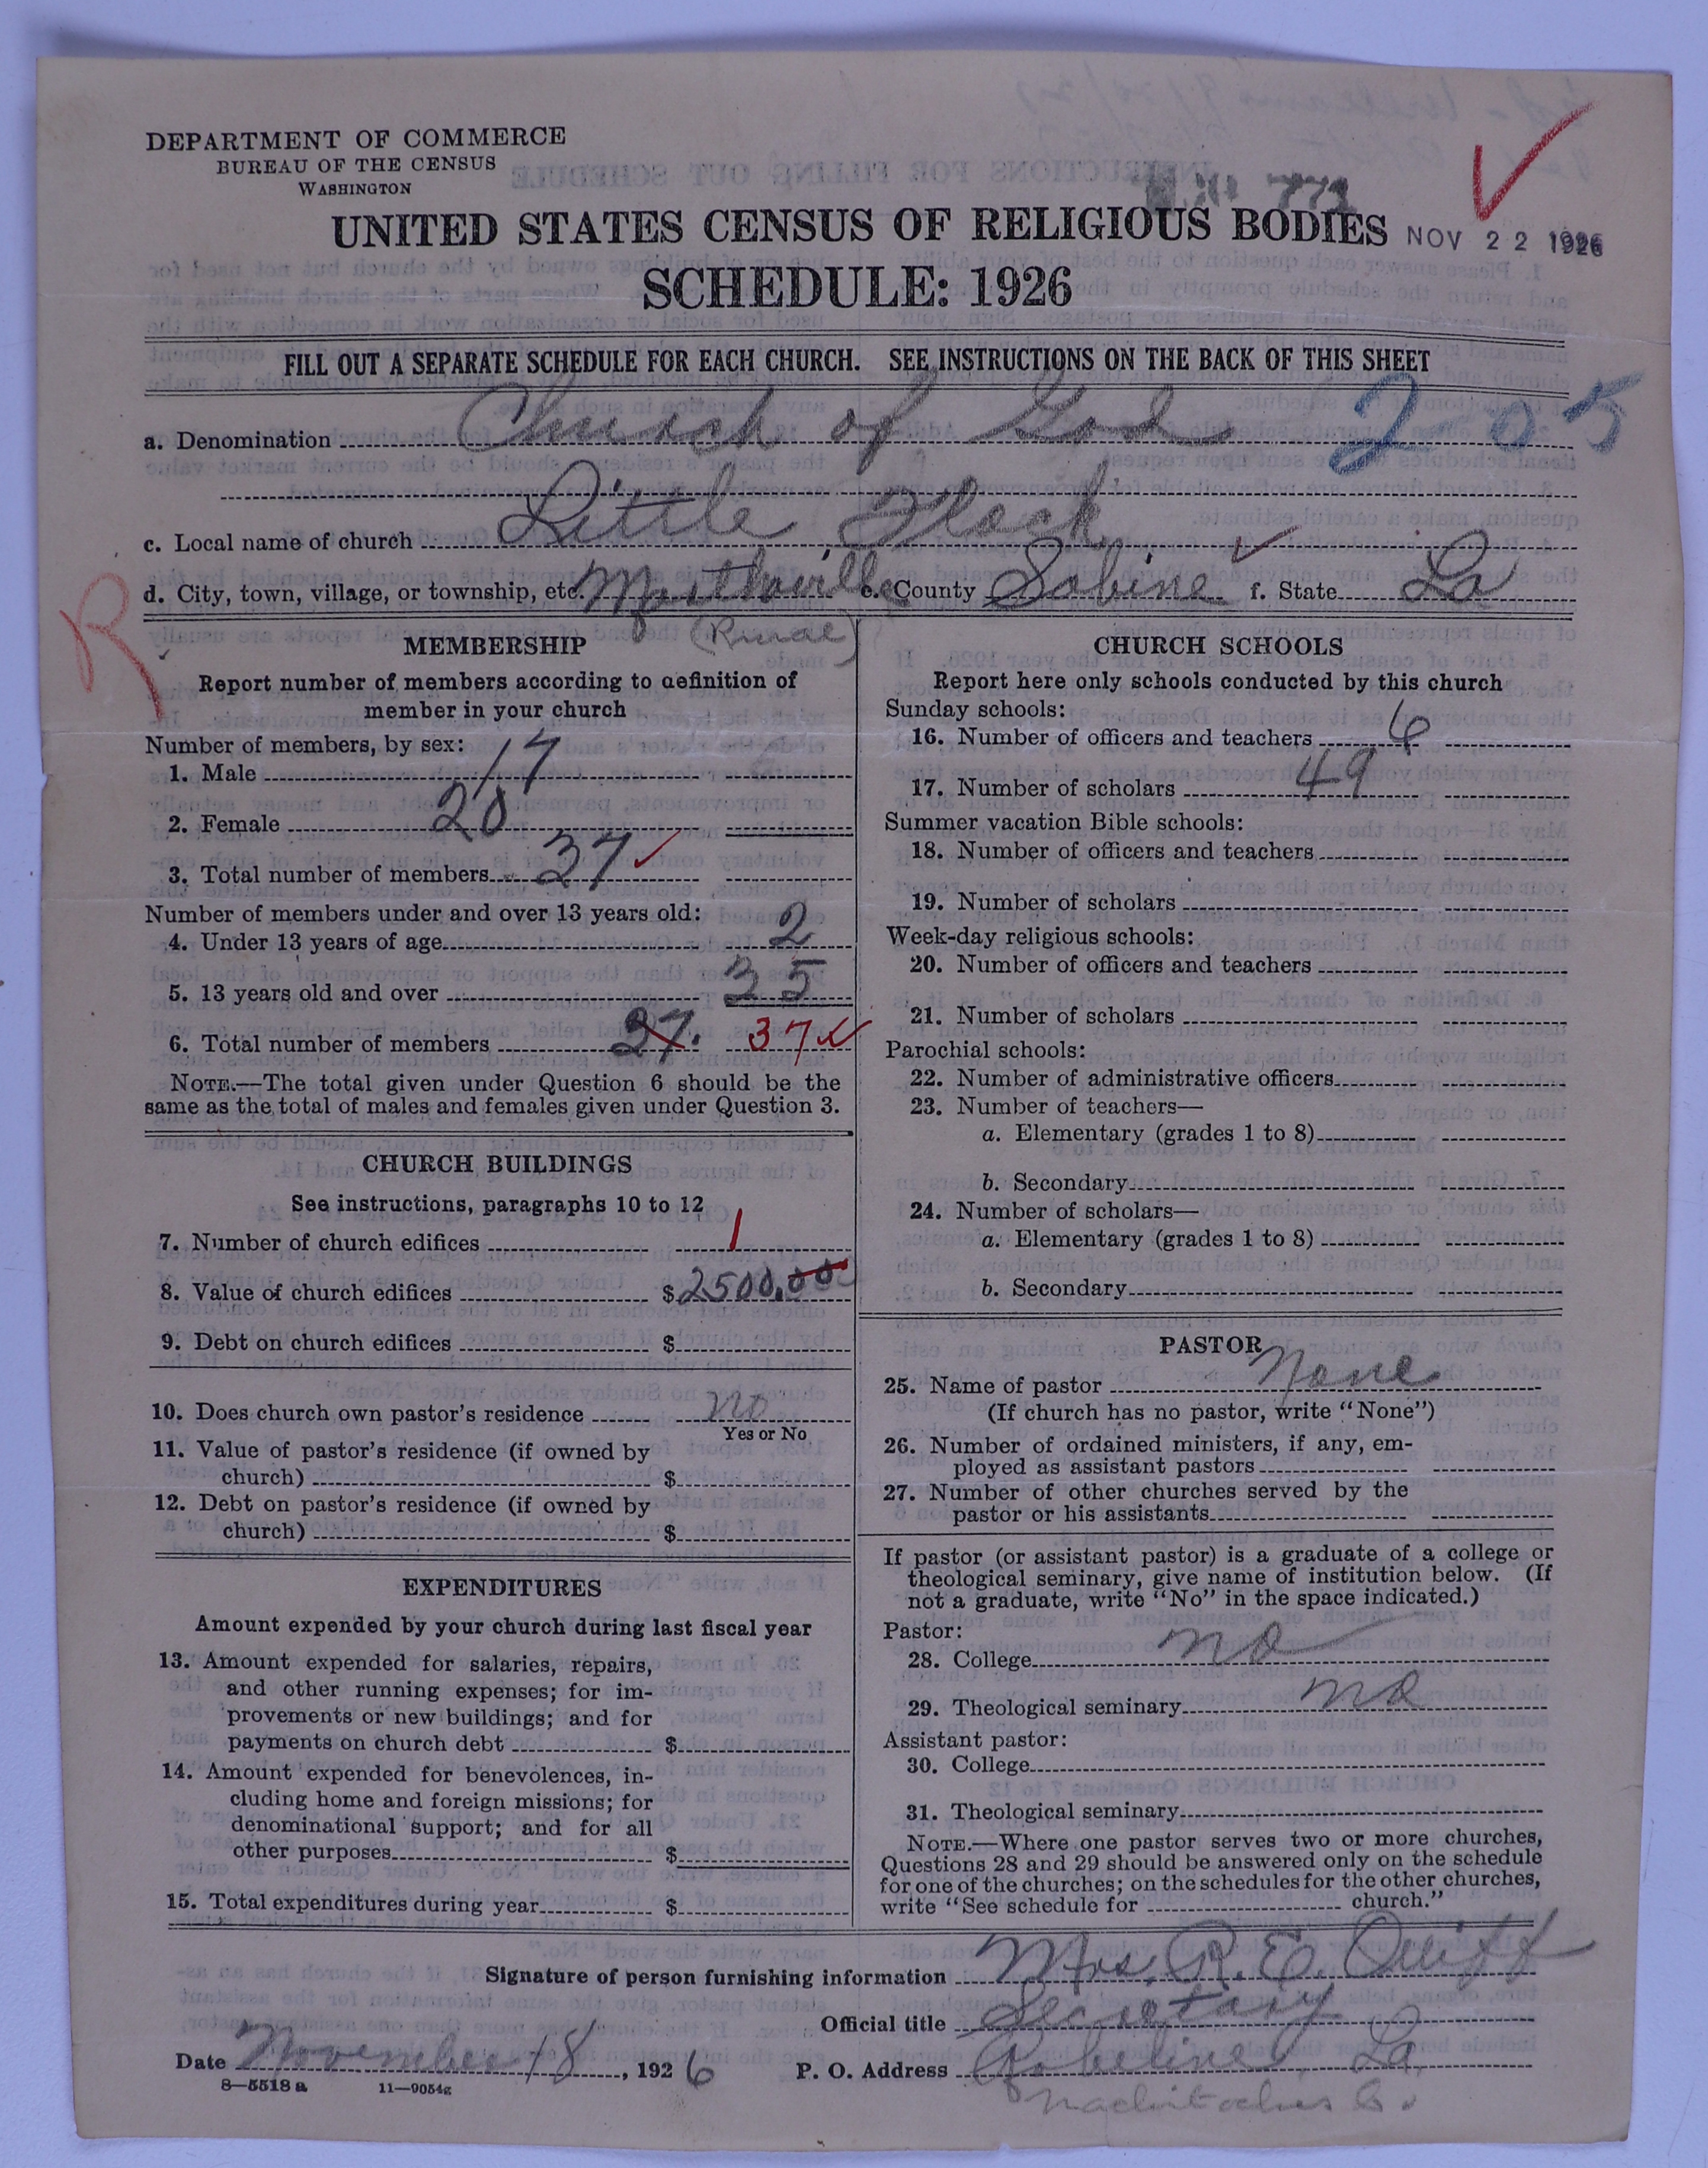 DEPARTMENT OF COMMERCE
BUREAU OF THE CENSUS
WASHINGTON
UNITED STATES CENSUS OF RELIGIOUS BODIES
NOV 22 1926
SCHEDULE: 1926
FILL OUT A SEPARATE SCHEDULE FOR EACH CHURCH. SEE INSTRUCTIONS ON THE BACK OF THIS SHEET
a. Denomination Church of God 2-05
c. Local name of church Little Flock
d. City, town, village, or township, etc. Marthaville e. County Sabine f. State La
(Rural)
R
MEMBERSHIP
Report number of members according to definition of
member in your church
Number of members, by sex:
1. Male 17
2. Female 20
3. Total number of members 37
Number of members under and over 13 years old:
4. Under 13 years of age 2
5. 13 years old and over 35
6. Total number of members 37. 37
NOTE.—The total given under Question 6 should be the
same as the total of males and females given under Question 3.
CHURCH BUILDINGS
See instructions, paragraphs 10 to 12
7. Number of church edifices 1
8. Value of church edifices $2500.00
9. Debt on church edifices $
10. Does church own pastor's residence no
Yes or No
11. Value of pastor's residence (if owned by
church) $
12. Debt on pastor's residence (if owned by
church) $
EXPENDITURES
Amount expended by your church during last fiscal year
13. Amount expended for salaries, repairs,
and other running expenses; for im-
provements or new buildings; and for
payments on church debt $
14. Amount expended for benevolences, in-
cluding home and foreign missions; for
denominational support; and for all
other purposes $
15. Total expenditures during year $
CHURCH SCHOOLS
Report here only schools conducted by this church
Sunday schools:
16. Number of officers and teachers 6
17. Number of scholars 49
Summer vacation Bible schools:
18. Number of officers and teachers
19. Number of scholars
Week-day religious schools:
20. Number of officers and teachers
21. Number of scholars
Parochial schools:
22. Number of administrative officers
23. Number of teachers—
a. Elementary (grades 1 to 8)
b. Secondary
24. Number of scholars—
a. Elementary (grades 1 to 8)
b. Secondary
PASTOR
25. Name of pastor None
(If church has no pastor, write "None")
26. Number of ordained ministers, if any, em-
ployed as assistant pastors
27. Number of other churches served by the
pastor or his assistants
If pastor (or assistant pastor) is a graduate of a college or
theological seminary, give name of institution below. (If
not a graduate, write "No" in the space indicated.)
Pastor:
28. College no
29. Theological seminary no
Assistant pastor:
30. College
31. Theological seminary
NOTE.—Where one pastor serves two or more churches,
Questions 28 and 29 should be answered only on the schedule
for one of the churches; on the schedules for the other churches,
write "See schedule for church."
Signature of person furnishing information Mrs. R. E.
Official title Secretary
Date November 18, 1926 P. O. Address Robeline, La,
8—5518 a 11—9054g
Nachitoches Co.